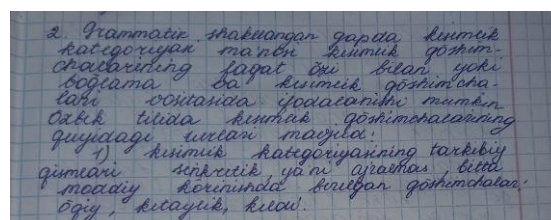 2. Grammatik shakllangan gapda kesimlik
kategoriyasi ma'nosi kesimlik qo'shim-
chalarining faqat o'zi bilan yoki
bog'lama va kesimlik qo'shimcha-
lari vositasida ifodalanishi mumkin
Ozbek tilida kesimlik qoshimchalarining
quyidagi turlari mavjud:
1) kesimlik kategoriyasining tarkibiy
qismlari sinkretik, ya'ni ajralmas, bitta
moddiy korinishda berilgan qoshimchalar:
kitaylik,